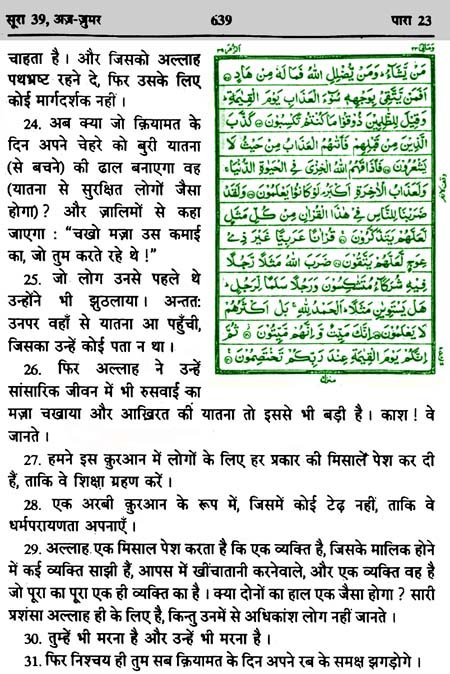 सूरा 39, अज़-ज़ुमर
639
पारा 23
चाहता है । और जिसको अल्लाह
पथभ्रष्ट रहने दे, फिर उसके लिए
कोई मार्गदर्शक नहीं ।
24. अब क्या जो क्रियामत के
दिन अपने चेहरे को बुरी यातना
(से बचने) की ढाल बनाएगा वह
(यातना से सुरक्षित लोगों जैसा
होगा)? और ज़ालिमों से कहा
जाएगा : “चखो मज़ा उस कमाई
का, जो तुम करते रहे थे !”
25. जो लोग उनसे पहले थे
उन्होंने भी झुठलाया । अन्ततः
उनपर वहाँ से यातना आ पहुँची,
जिसका उन्हें कोई पता न था ।
26. फिर अल्लाह ने उन्हें
सांसारिक जीवन में भी रुसवाई का
مَنْ يَّشَآءُ ؕ وَمَنْ يُّضْلِلِ اللّٰهُ فَمَا لَهٗ مِنْ هَادٍ
اَفَمَنْ يَّتَّقِىْ بِوَجْهِهٖ سُوْٓءَ الْعَذَابِ يَوْمَ الْقِيٰمَةِ ؕ
وَقِيْلَ لِلظّٰلِمِيْنَ ذُوْقُوْا مَا كُنْتُمْ تَكْسِبُوْنَ كَذَّبَ
الَّذِيْنَ مِنْ قَبْلِهِمْ فَاَتٰىهُمُ الْعَذَابُ مِنْ حَيْثُ لَا
يَشْعُرُوْنَ فَاَذَاقَهُمُ اللّٰهُ الْخِزْىَ فِى الْحَيٰوةِ الدُّنْيَا ۚ
وَلَعَذَابُ الْاٰخِرَةِ اَكْبَرُ ۘ لَوْ كَانُوْا يَعْلَمُوْنَ وَلَقَدْ
ضَرَبْنَا لِلنَّاسِ فِىْ هٰذَا الْقُرْاٰنِ مِنْ كُلِّ مَثَلٍ
لَّعَلَّهُمْ يَتَذَكَّرُوْنَ قُرْاٰنًا عَرَبِيًّا غَيْرَ ذِىْ
عِوَجٍ لَّعَلَّهُمْ يَتَّقُوْنَ ضَرَبَ اللّٰهُ مَثَلًا رَّجُلًا
فِيْهِ شُرَكَآءُ مُتَشٰكِسُوْنَ وَرَجُلًا سَلَمًا لِّرَجُلٍ ؕ
هَلْ يَسْتَوِيٰنِ مَثَلًا ؕ اَلْحَمْدُ لِلّٰهِ ۚ بَلْ اَكْثَرُهُمْ
لَا يَعْلَمُوْنَ اِنَّكَ مَيِّتٌ وَّاِنَّهُمْ مَّيِّتُوْنَ ثُمَّ
اِنَّكُمْ يَوْمَ الْقِيٰمَةِ عِنْدَ رَبِّكُمْ تَخْتَصِمُوْنَ
मज़ा चखाया और आख़िरत की यातना तो इससे भी बड़ी है । काश ! वे
जानते ।
27. हमने इस क़ुरआन में लोगों के लिए हर प्रकार की मिसालें पेश कर दी
हैं, ताकि वे शिक्षा ग्रहण करें ।
28. एक अरबी क़ुरआन के रूप में, जिसमें कोई टेढ़ नहीं, ताकि वे
धर्मपरायणता अपनाएँ ।
29. अल्लाह एक मिसाल पेश करता है कि एक व्यक्ति है, जिसके मालिक होने
में कई व्यक्ति साझी हैं, आपस में खींचातानी करनेवाले, और एक व्यक्ति वह है
जो पूरा का पूरा एक ही व्यक्ति का है । क्या दोनों का हाल एक जैसा होगा ? सारी
प्रशंसा अल्लाह ही के लिए है, किन्तु उनमें से अधिकांश लोग नहीं जानते ।
30. तुम्हें भी मरना है और उन्हें भी मरना है ।
31. फिर निश्चय ही तुम सब क़ियामत के दिन अपने रब के समक्ष झगड़ोगे ।